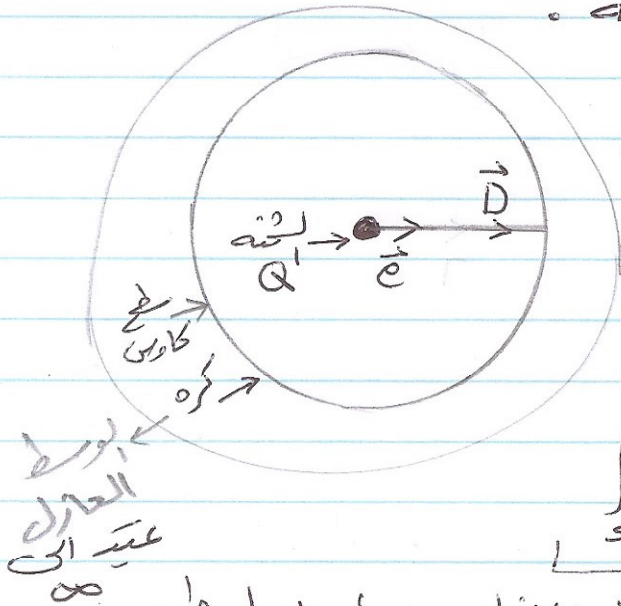 D
لشحنة
Q
e
سطح
كاوس
كرة
الوسط
العازل
يمتد الى
∞